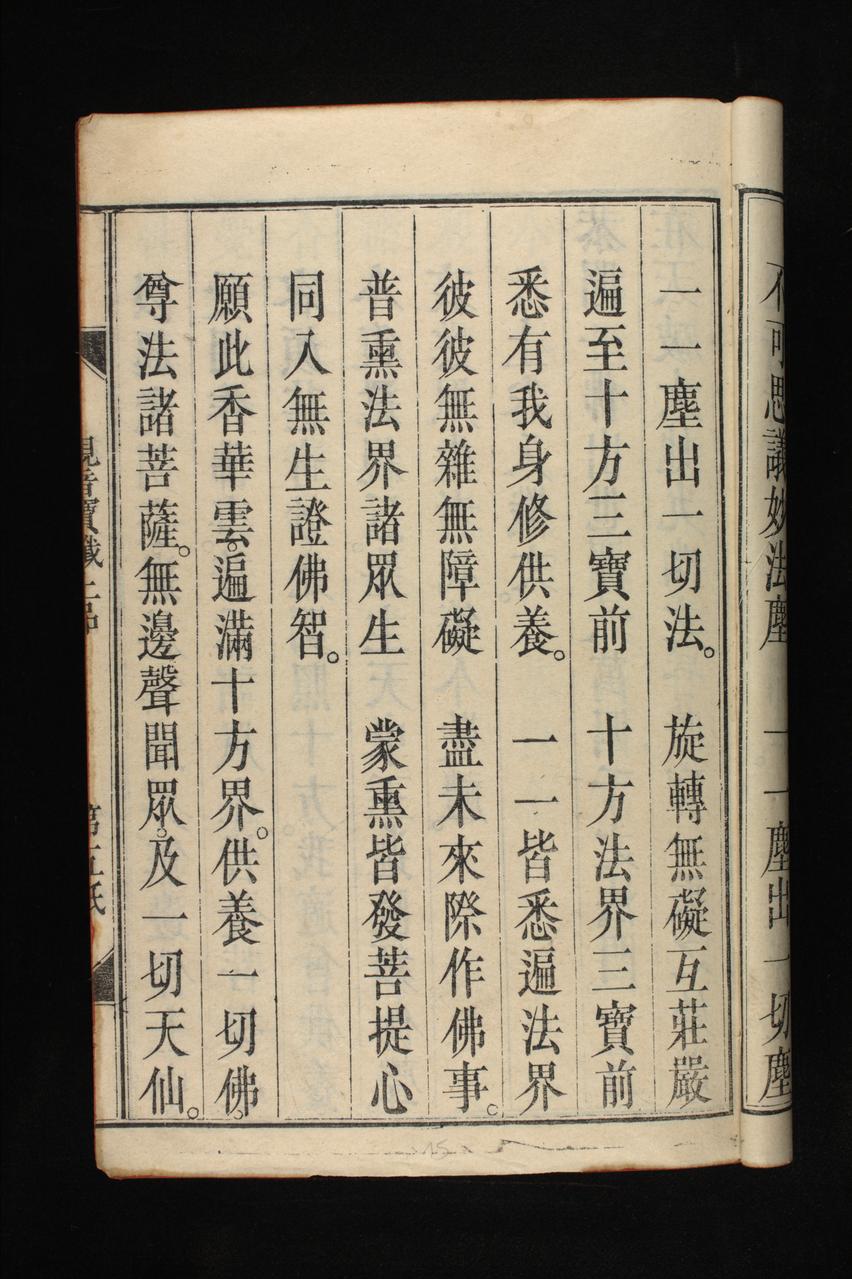 不可思議妙法塵　一一塵出一切塵
一一塵出一切法。　旋轉無礙互莊嚴
遍至十方三寶前　十方法界三寶前
悉有我身修供養。　一一皆悉遍法界
彼彼無雜無障礙　盡未來際作佛事。
普熏法界諸眾生　蒙熏皆發菩提心
同入無生證佛智。
願此香華雲。遍滿十方界。供養一切佛。
尊法諸菩薩。無邊聲聞眾。及一切天仙。
觀音寶懺上品　第五紙